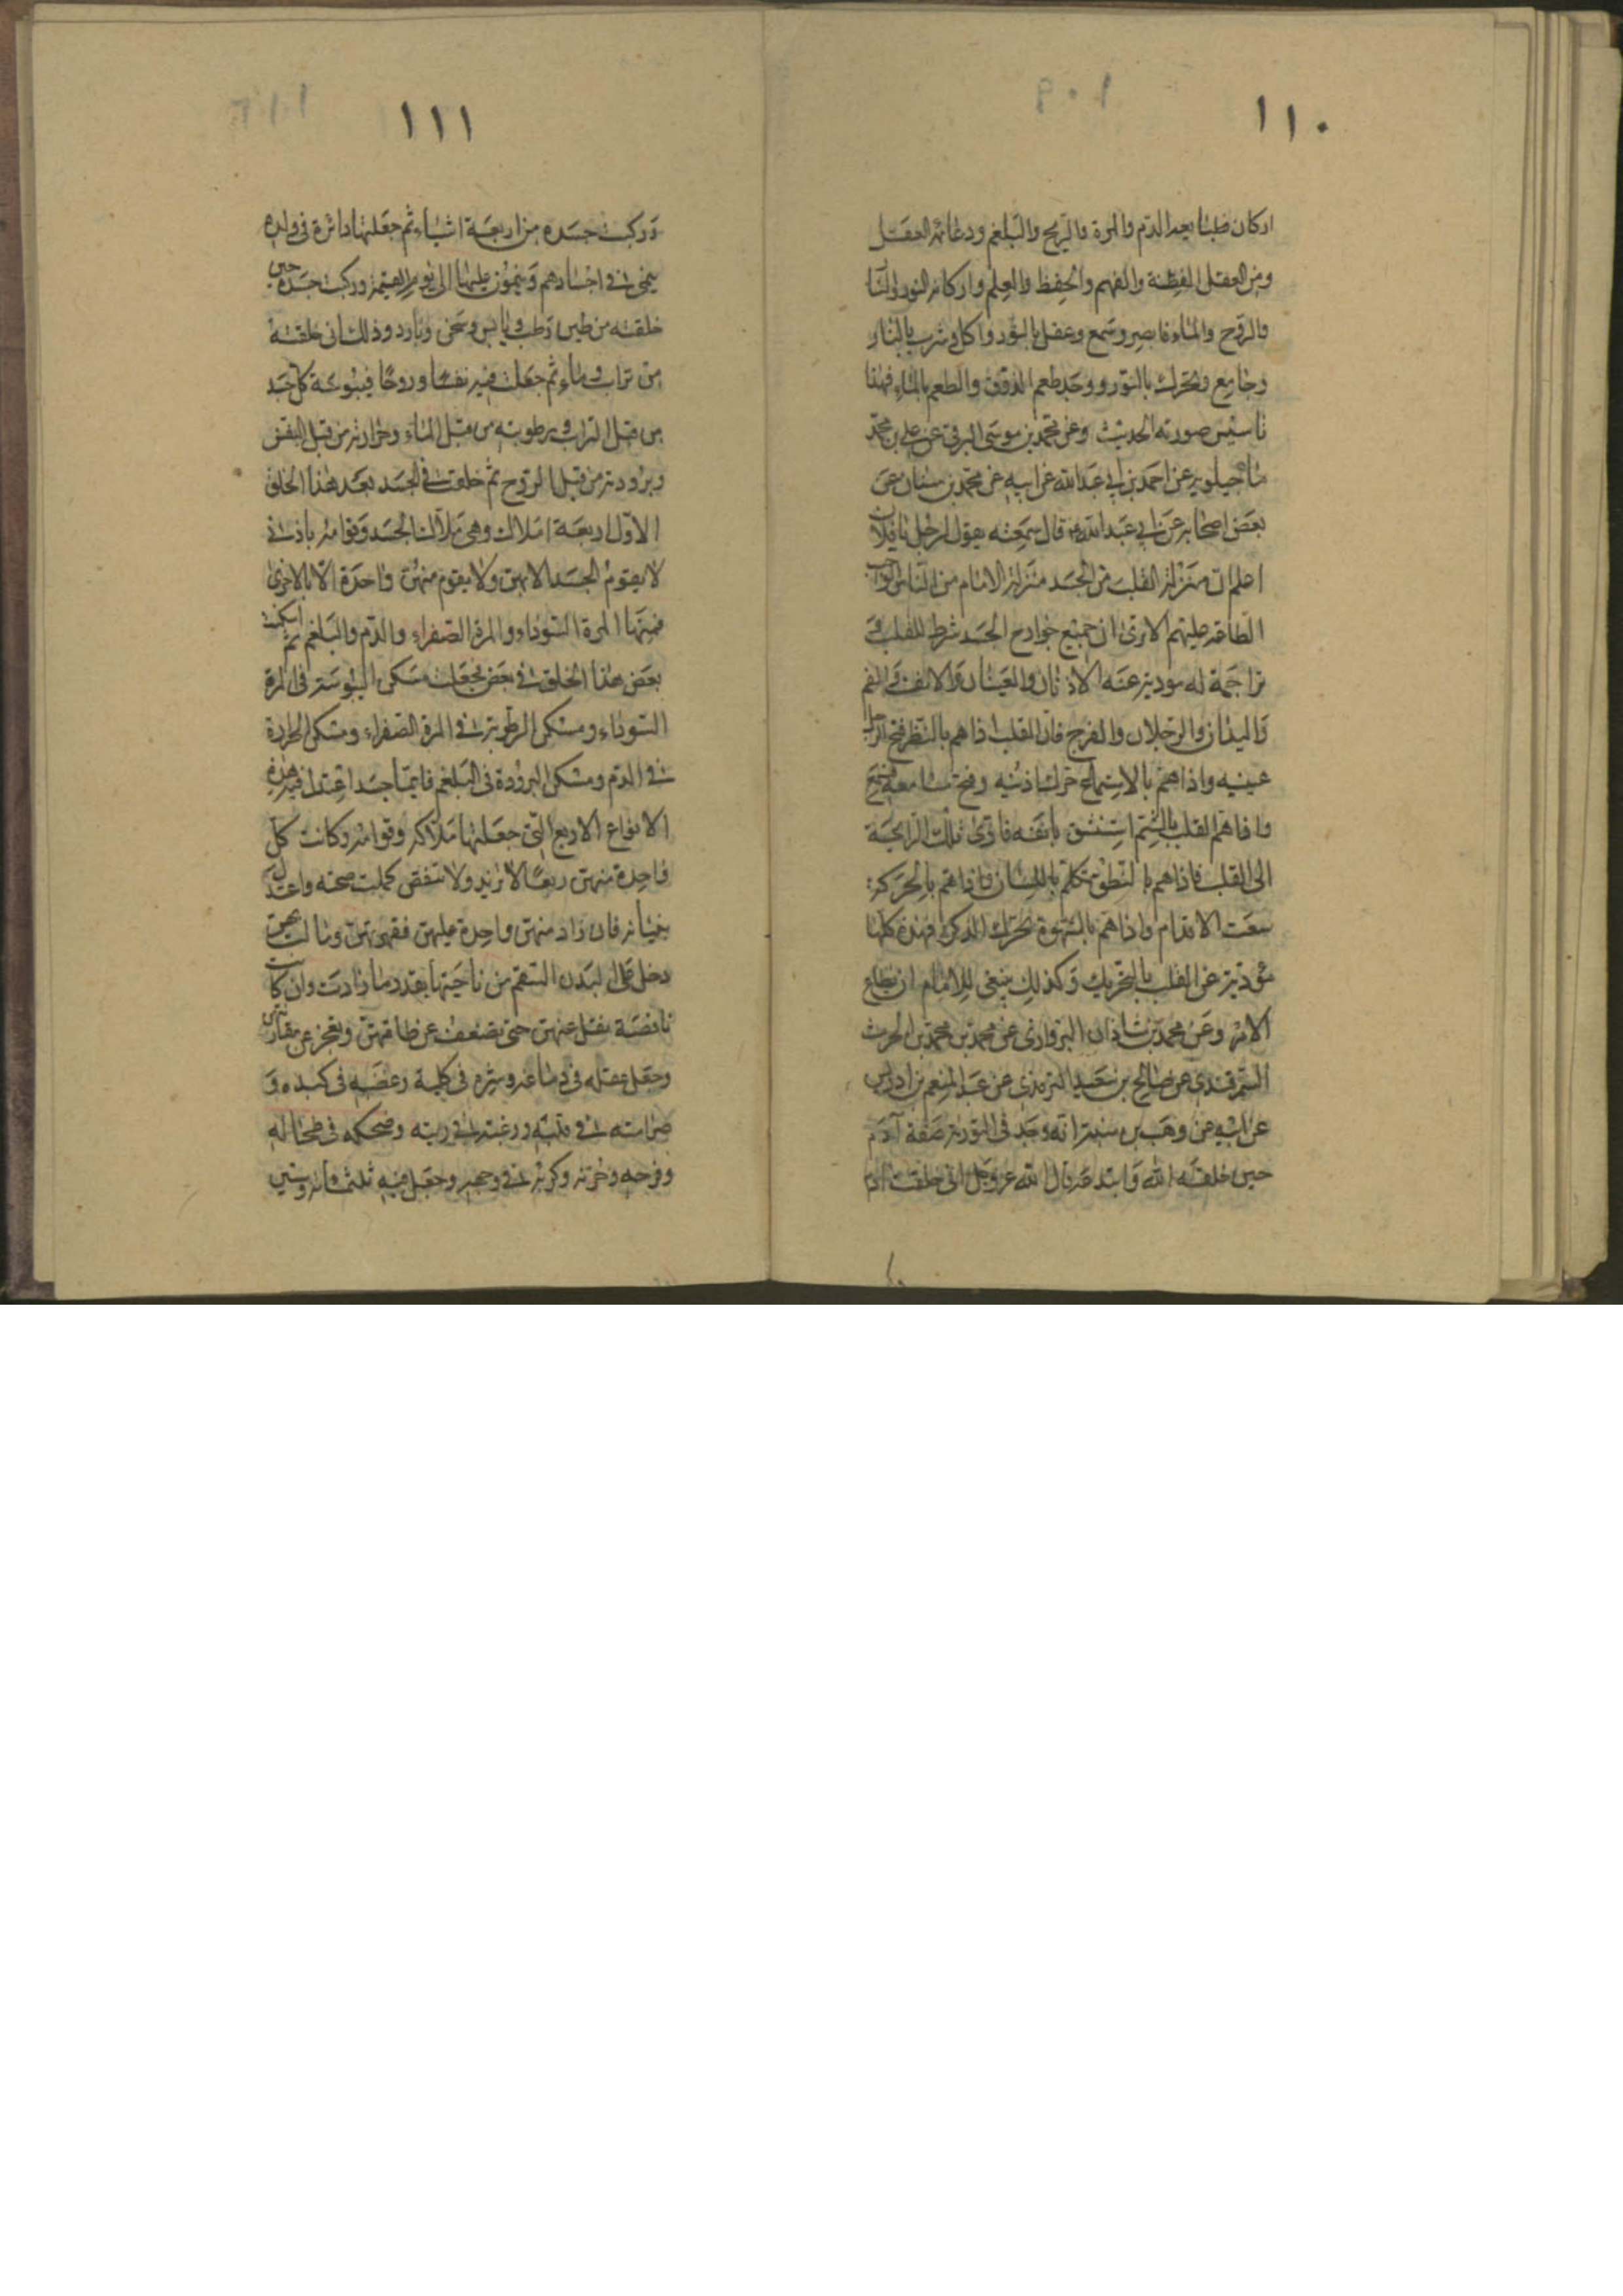 ١١٠
اركان طبايعه الدم والمرة والريح والبلغم ودعائمه العقل
ومن العقل الفطنة والفهم والحفظ والعلم واركانه النور والنار
والروح والماء فابصر وسمع وعقل بالنور واكل وشرب بالنار
وجامع وتحرك بالنور ووجد طعم الذوق والطعم بالماء فهذا
تاسيس صورته الحديث وعن محمد بن موسى البرقى عن على بن محمد
ماجيلويه عن احمد بن ابى عبد الله عن ابيه عن محمد بن سنان عن
بعض اصحابه عن ابى عبد الله قال سمعته يقول لرجل يا فلان
اعلم ان منزلة القلب من الجسد منزلة الامام من الناس الواجب
الطاعة عليهم الا ترى ان جميع جوارح الجسد شرط للقلب و
تراجمة له مودية عنه الاذنان والعينان والانف والفم
واليدان والرجلان والفرج فان القلب اذا هم بالنظر فتح الرجل
عينيه واذا هم بالاستماع حرك اذنيه وفتح مسامعه فسمع
واذا هم القلب بالشم استنشق بانفه فادى تلك الرايحة
الى القلب فاذا هم بالنطق تكلم باللسان واذا هم بالحركة
سعت الاقدام واذا هم بالشهوة تحرك الذكر فهذه كلها
مؤدية عن القلب بالتحريك وكذلك ينبغى للامام ان يطاع
الامر وعن محمد بن شاذان البروازى عن محمد بن محمد بن الحرث
السمرقندى عن صالح بن سعيد الترمذى عن عبد المنعم بن ادريس
عن ابيه عن وهب بن منبه انه وجد فى التورية صفة آدم
حين خلقه الله وابتدعه قال الله عز وجل انى خلقت آدم
١١١
وركبت جسده من اربعة اشياء ثم جعلتها داثرة فى ولده
ينمى فى اجسادهم وينمون عليها الى يوم القيمة وركبت جسده حين
خلقته من طين رطب ويابس وسخن وبارد وذلك انى خلقته
من تراب وماء ثم جعلت فيه نفسا وروحا فيبوسة كل جسد
من قبل التراب ورطوبته من قبل الماء وحرارته من قبل النفس
وبرودته من قبل الروح ثم خلقت فى الجسد بعد هذا الخلق
الاول اربعة املاك وهى ملاك الجسد وقوامه باذنى
لا يقوم الجسد الا بهن ولا يقوم منهن واحدة الا بالاخرى
فمنها المرة السوداء والمرة الصفراء والدم والبلغم ثم اسكنت
بعض هذا الخلق فى بعض فجعلت مسكن اليبوسة فى المرة
السوداء ومسكن الرطوبة فى المرة الصفراء ومسكن الحرارة
فى الدم ومسكن البرودة فى البلغم فايما جسد اعتدلت فيه هذه
الانواع الاربع التى جعلتها ملاكه وقوامه وكانت كل
واحدة منهن ربعا لا تزيد ولا تنقص كملت صحته واعتدل
بنيانه فان زاد منهن واحدة عليهن فقهرتهن ومالت بهن
دخل على البدن السقم من ناحيتها بقدر ما زادت وان كانت
ناقصة تقل عنهن حتى تضعف عن طاقتهن وتعجز عن مقارنتهن
وجعل عقله فى دماغه وشره فى كليته وغضبه فى كبده و
صرامته فى قلبه ورغبته فى ريته وضحكه فى طحاله
وفرحه وحزنه وكربه فى وجهه وجعل فيه ثلثمائة وستين